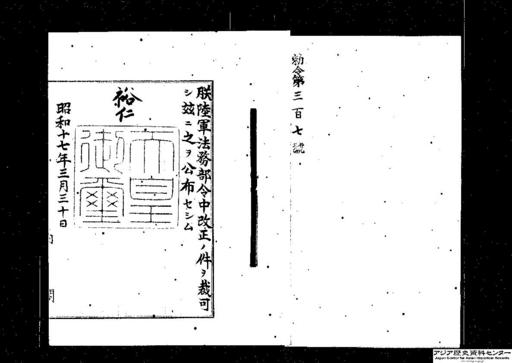 勅令第三百七號
朕陸軍法務部令中改正ノ件ヲ裁可
シ玆ニ之ヲ公布セシム
裕仁
天皇
御璽
昭和十七年三月三十日
アジア歴史資料センター
Japan Center for Asian Historical Records